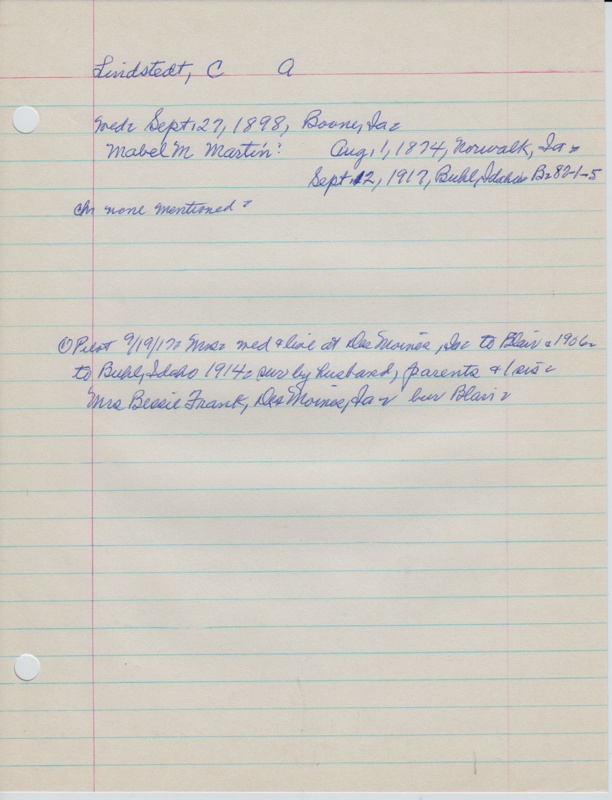 Lindstedt, C A
wed: Sept. 27, 1898, Boone, Ia.
Mabel M Martin: Aug 1, 1874, Norwalk, Ia.
Sept. 12, 1917, Buhl, Idaho B-82-1-5
ch none mentioned.
① Pilot 9/19/17: Mrs: wed & live at Des Moines, Ia to Blair 1906.
to Buhl, Idaho 1914. sur by husband, parents & 1 sis.
Mrs Bessie Frank, Des Moines, Ia. bur Blair.